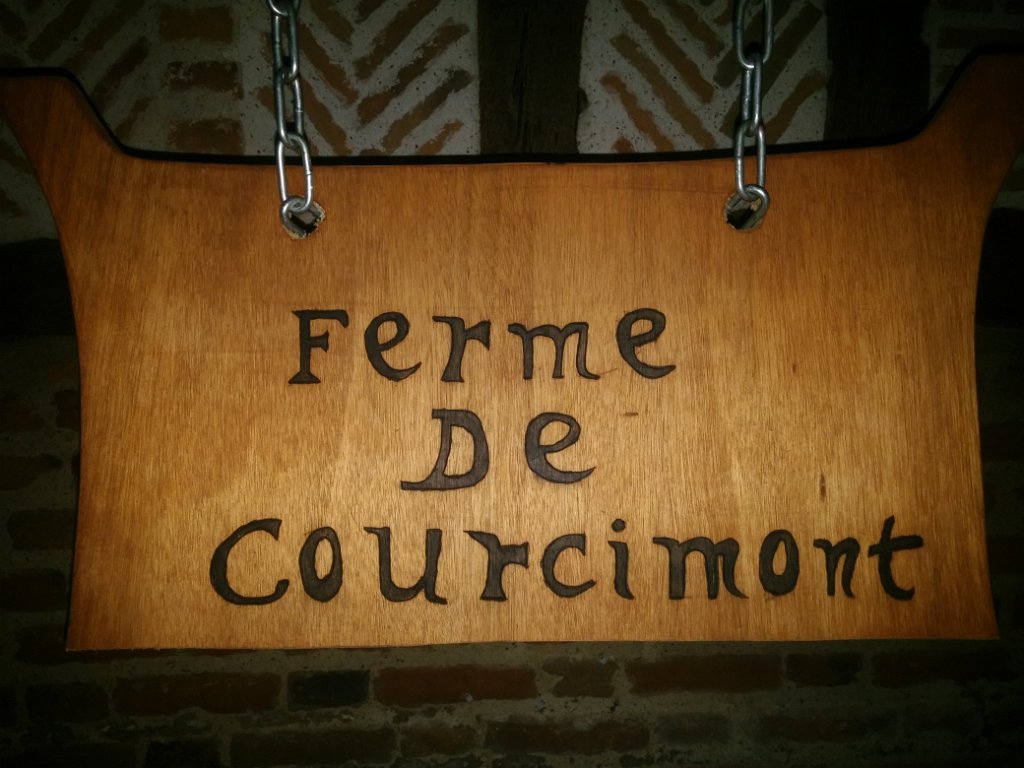 Ferme
De
Courcimont